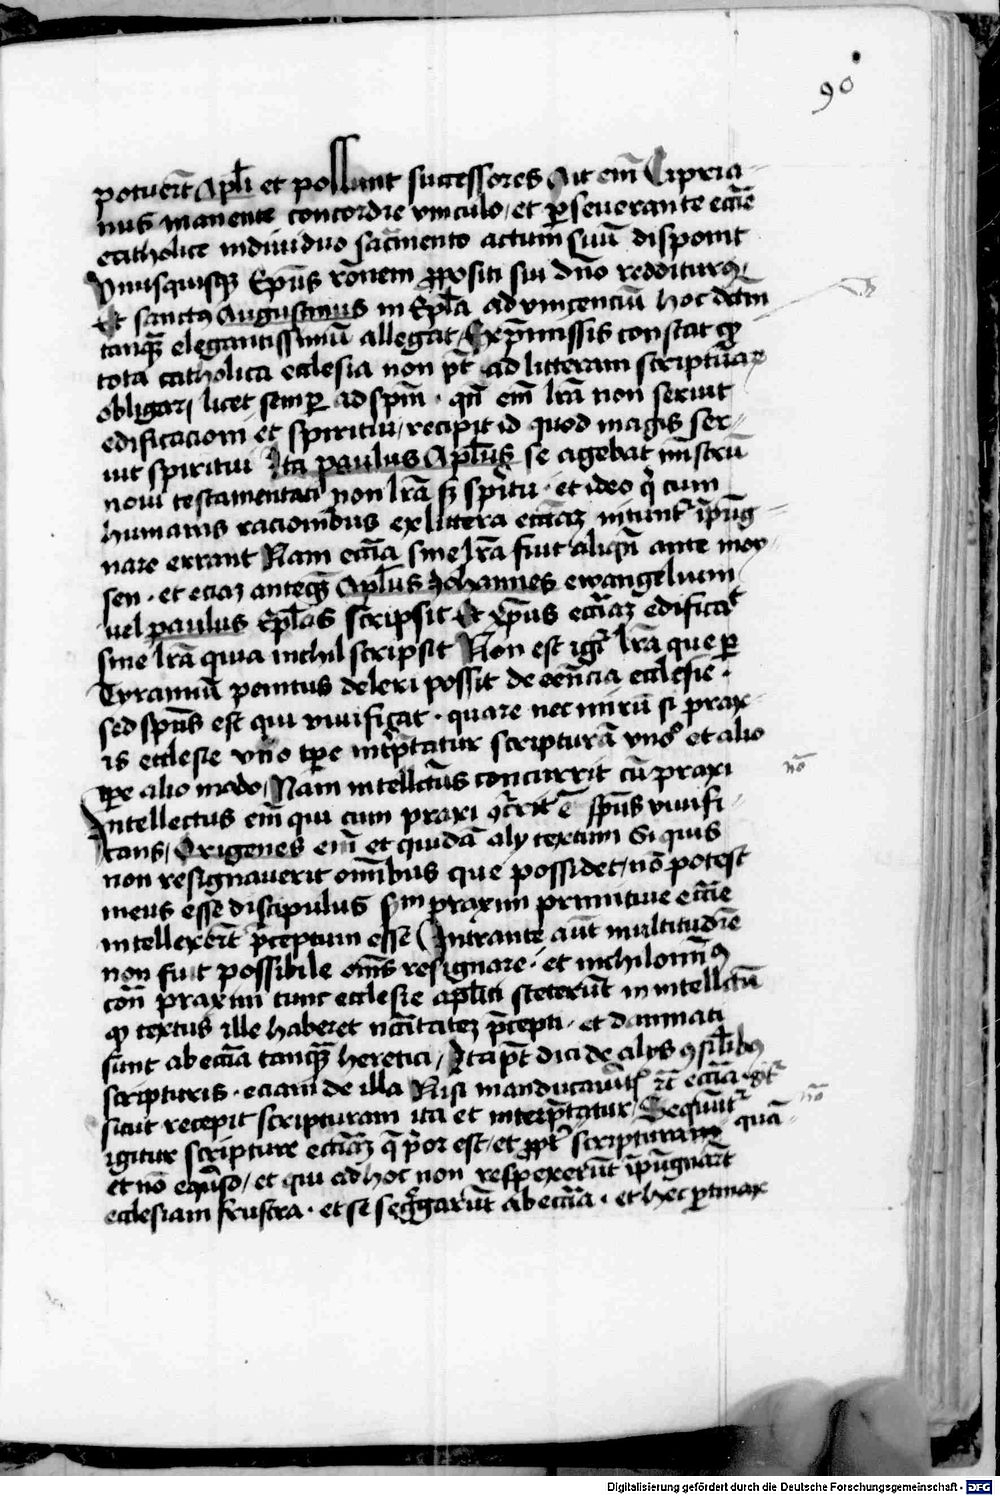 90
potuerūt Apl̄i et possunt successores Ait em̄ Cipria-
nus manente concordie vinculo et ꝑseuerante ecc̄ie
catholice indiuiduo sac̄mento actum suū disponit
Vnusquisqꝫ Ep̄us rōnem ꝓpositi sui dn̄o redditurꝰ
Et sanctꝰ Augustinus in Ep̄la ad vincenciū hoc dc̄m
tanqꝫ elegantissimū allegat Ex p̄missis constat ꝙ
tota catholica ecclesia non pt̄ ad litteram scripturaꝝ
obligari licet semꝑ ad sp̄m · qn̄ em̄ lr̄a non seruit
edificacioni et spiritui recipit id quod magis ser-
uit spiritui Ita paulus Apl̄us se agebat mīstrū
noui testamentati non lr̄a sꝫ spiritu · et ideo qͥ cum
humanis racionibus ex littera ecc̄iaꝫ nitunt͛ īpūg-
nare errant Nam ecc̄ia sine lr̄a fuit aliqn̄ ante moy-
sen · et eciaꝫ anteqꝫ Apl̄us Johannes ewangelium
vel paulus Ep̄las scripsit Et xp̄us ecc̄iaꝫ edificat
sine lr̄a quia nichil scripsit Non est igͥ lr̄a que ꝑ
Tyrannū penitus deleri possit de eēncia ecclesie ·
sed sp̄us est qui viuificat · quare nec mirū si prax-
is ecclesie vno tꝑe int̄p̄tatur scripturā vno et alio
tꝑe alio modo Nam intellectus concurrit cū praxi
nō
Intellectus em̄ qui cum praxi ꝯcurrit ē sp̄us viuifi-
cans Origenes em̄ et quidā alij textum Si quis
non resignauerit om̄ibus que possidet nō potest
meus esse discipulus scd̄m praxim primitiue ecc̄ie
intellexerūt p̄ceptum esse Intrante aūt multitudīe
non fuit possibile om̄s resignare · et nichilominꝰ
praxim tunc ecclesie apl̄ici steterūt in intellectū
ꝙ textus ille haberet nc̄itateꝫ p̄cepti · et damnati
sunt ab ecc̄ia tanqꝫ heretici Ita pt̄ dici de alijs ꝯsil̄ibꝰ
scripturis · eciam de illa Nisi manducaūit͛ ꝛc̄ ecc̄ia igͥ
nō
sicut recepit scripturam ita et interp̄tatur Sequūt͛
igitur scripture ecc̄iaꝫ q̄ prior est et ꝓpt͛ scripturam
quā
et nō ecōuerso et qui ad hoc non respexerūt īpūgnarūt
ecclesiam frustra · et se seg̊garūt ab ecc̄ia · et hec ꝑtinax
Digitalisierung gefördert durch die Deutsche Forschungsgemeinschaft - DFG